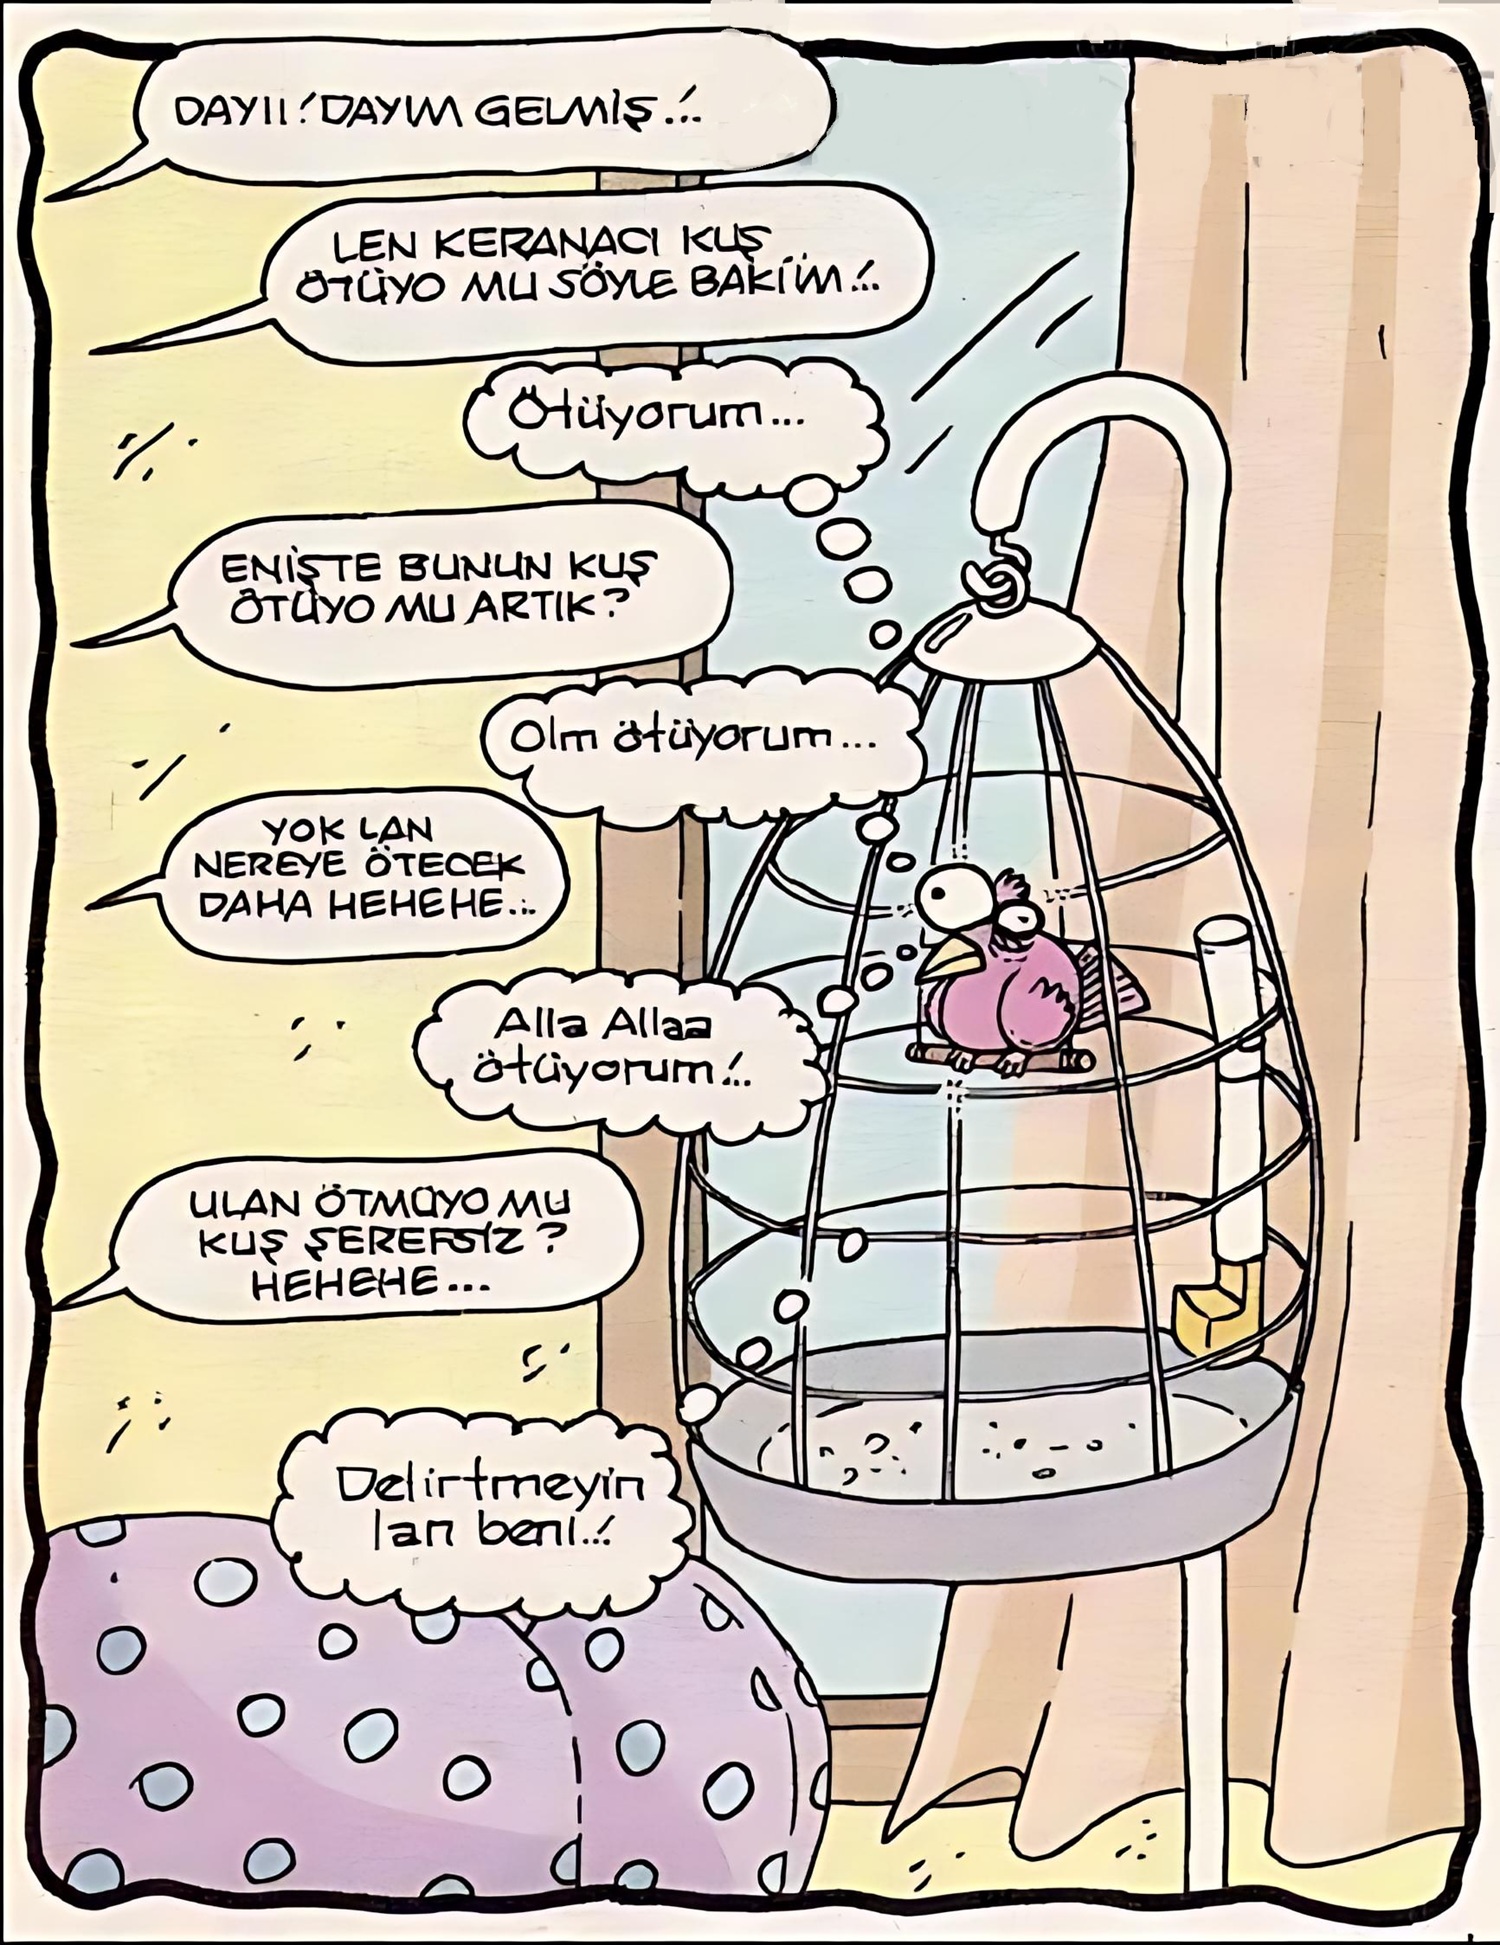 DAYII! DAYIM GELMİŞ..!
LEN KERANACI KUŞ
ÖTÜYO MU SÖYLE BAKİİM!..
Ötüyorum...
ENİŞTE BUNUN KUŞ
ÖTÜYO MU ARTIK?
Olm ötüyorum...
YOK LAN
NEREYE ÖTECEK
DAHA HEHEHE...
Alla Allaa
ötüyorum!..
ULAN ÖTMÜYO MU
KUŞ ŞEREFSİZ?
HEHEHE...
Delirtmeyin
lan beni..!